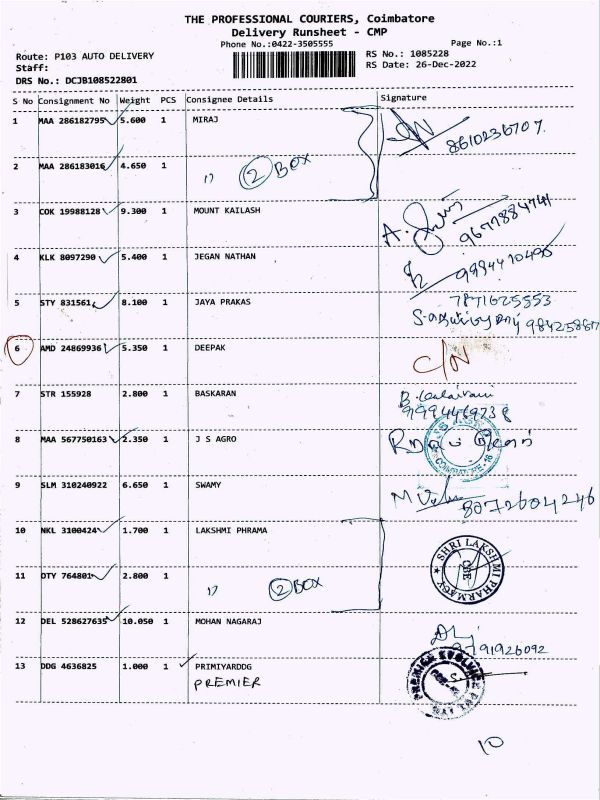 THE PROFESSIONAL COURIERS, Coimbatore
Delivery Runsheet - CMP
Phone No.:0422-3505555
Page No.:1
Route: P103 AUTO DELIVERY
RS No.: 1085228
Staff:
RS Date: 26-Dec-2022
DRS No.: DCJB108522801
S No Consignment No Weight PCS Consignee Details Signature
1 MAA 286182795 5.600 1 MIRAJ
8610236707
2 MAA 286183016 4.650 1 " 2 BOX
3 COK 19988128 9.300 1 MOUNT KAILASH
A.
9677884741
4 KLK 8097290 5.400 1 JEGAN NATHAN
5 STY 831561 8.100 1 JAYA PRAKAS
7871625553
6 AMD 24869936 5.350 1 DEEPAK C/N
7 STR 155928 2.800 1 BASKARAN
8 MAA 567750163 2.350 1 J S AGRO
9 SLM 310240922 6.650 1 SWAMY
8072604246
10 NKL 3100424 1.700 1 LAKSHMI PHRAMA
SHRI LAKSHMI PHARMACY
CBE
11 DTY 764801 2.800 1 " 2 BOX
12 DEL 528627635 10.050 1 MOHAN NAGARAJ
9791926092
13 DDG 4636825 1.000 1 PRIMIYARDDG
PREMIER
10